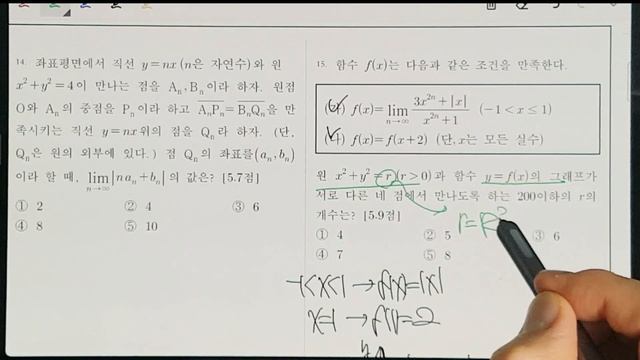 14. 좌표평면에서 직선 y=nx (n은 자연수)와 원
x²+y²=4이 만나는 점을 Aₙ, Bₙ이라 하자. 원점
O와 Aₙ의 중점을 Pₙ이라 하고 AₙPₙ=BₙQₙ을 만
족시키는 직선 y=nx 위의 점을 Qₙ라 하자. (단,
Qₙ은 원의 외부에 있다.) 점 Qₙ의 좌표를(aₙ, bₙ)
이라 할 때, lim n→∞ |naₙ+bₙ|의 값은? [5.7점]
① 2 ② 4 ③ 6
④ 8 ⑤ 10
15. 함수 f(x)는 다음과 같은 조건을 만족한다.
(가) f(x)=lim n→∞ (3x²ⁿ+|x|)/(x²ⁿ+1) (-1<x≤1)
(나) f(x)=f(x+2) (단, x는 모든 실수)
원 x²+y²=r(r>0)과 함수 y=f(x)의 그래프가
서로 다른 네 점에서 만나도록 하는 200이하의 r의
개수는? [5.9점]
① 4 ② 5 ③ 6
④ 7 ⑤ 8
r=R²
-1<x<1 → f(x)=|x|
x=1 → f(1)=2
y